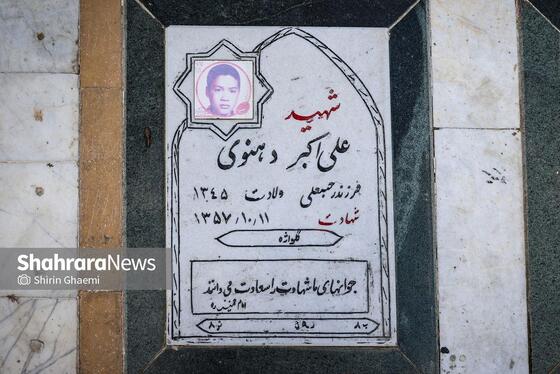 شهید
علی اکبر دهنوی
فرزند رجبعلی ولادت ۱۳۴۵
شهادت ۱۳۵۷/۱۰/۱۱
گلواژه
جوانهای ما شهادت را سعادت می دانند
امام خمینی ره
ShahraraNews
Shirin Ghaemi